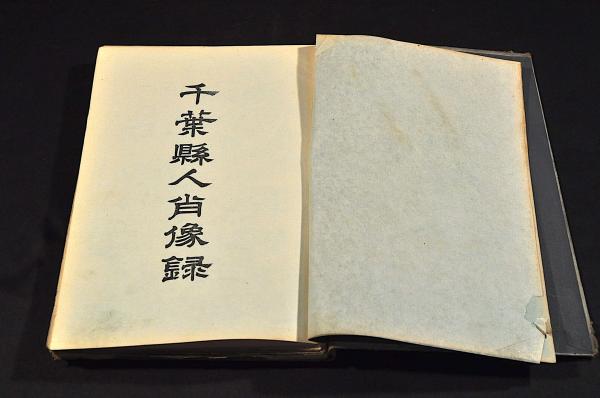 千葉縣人肖像録